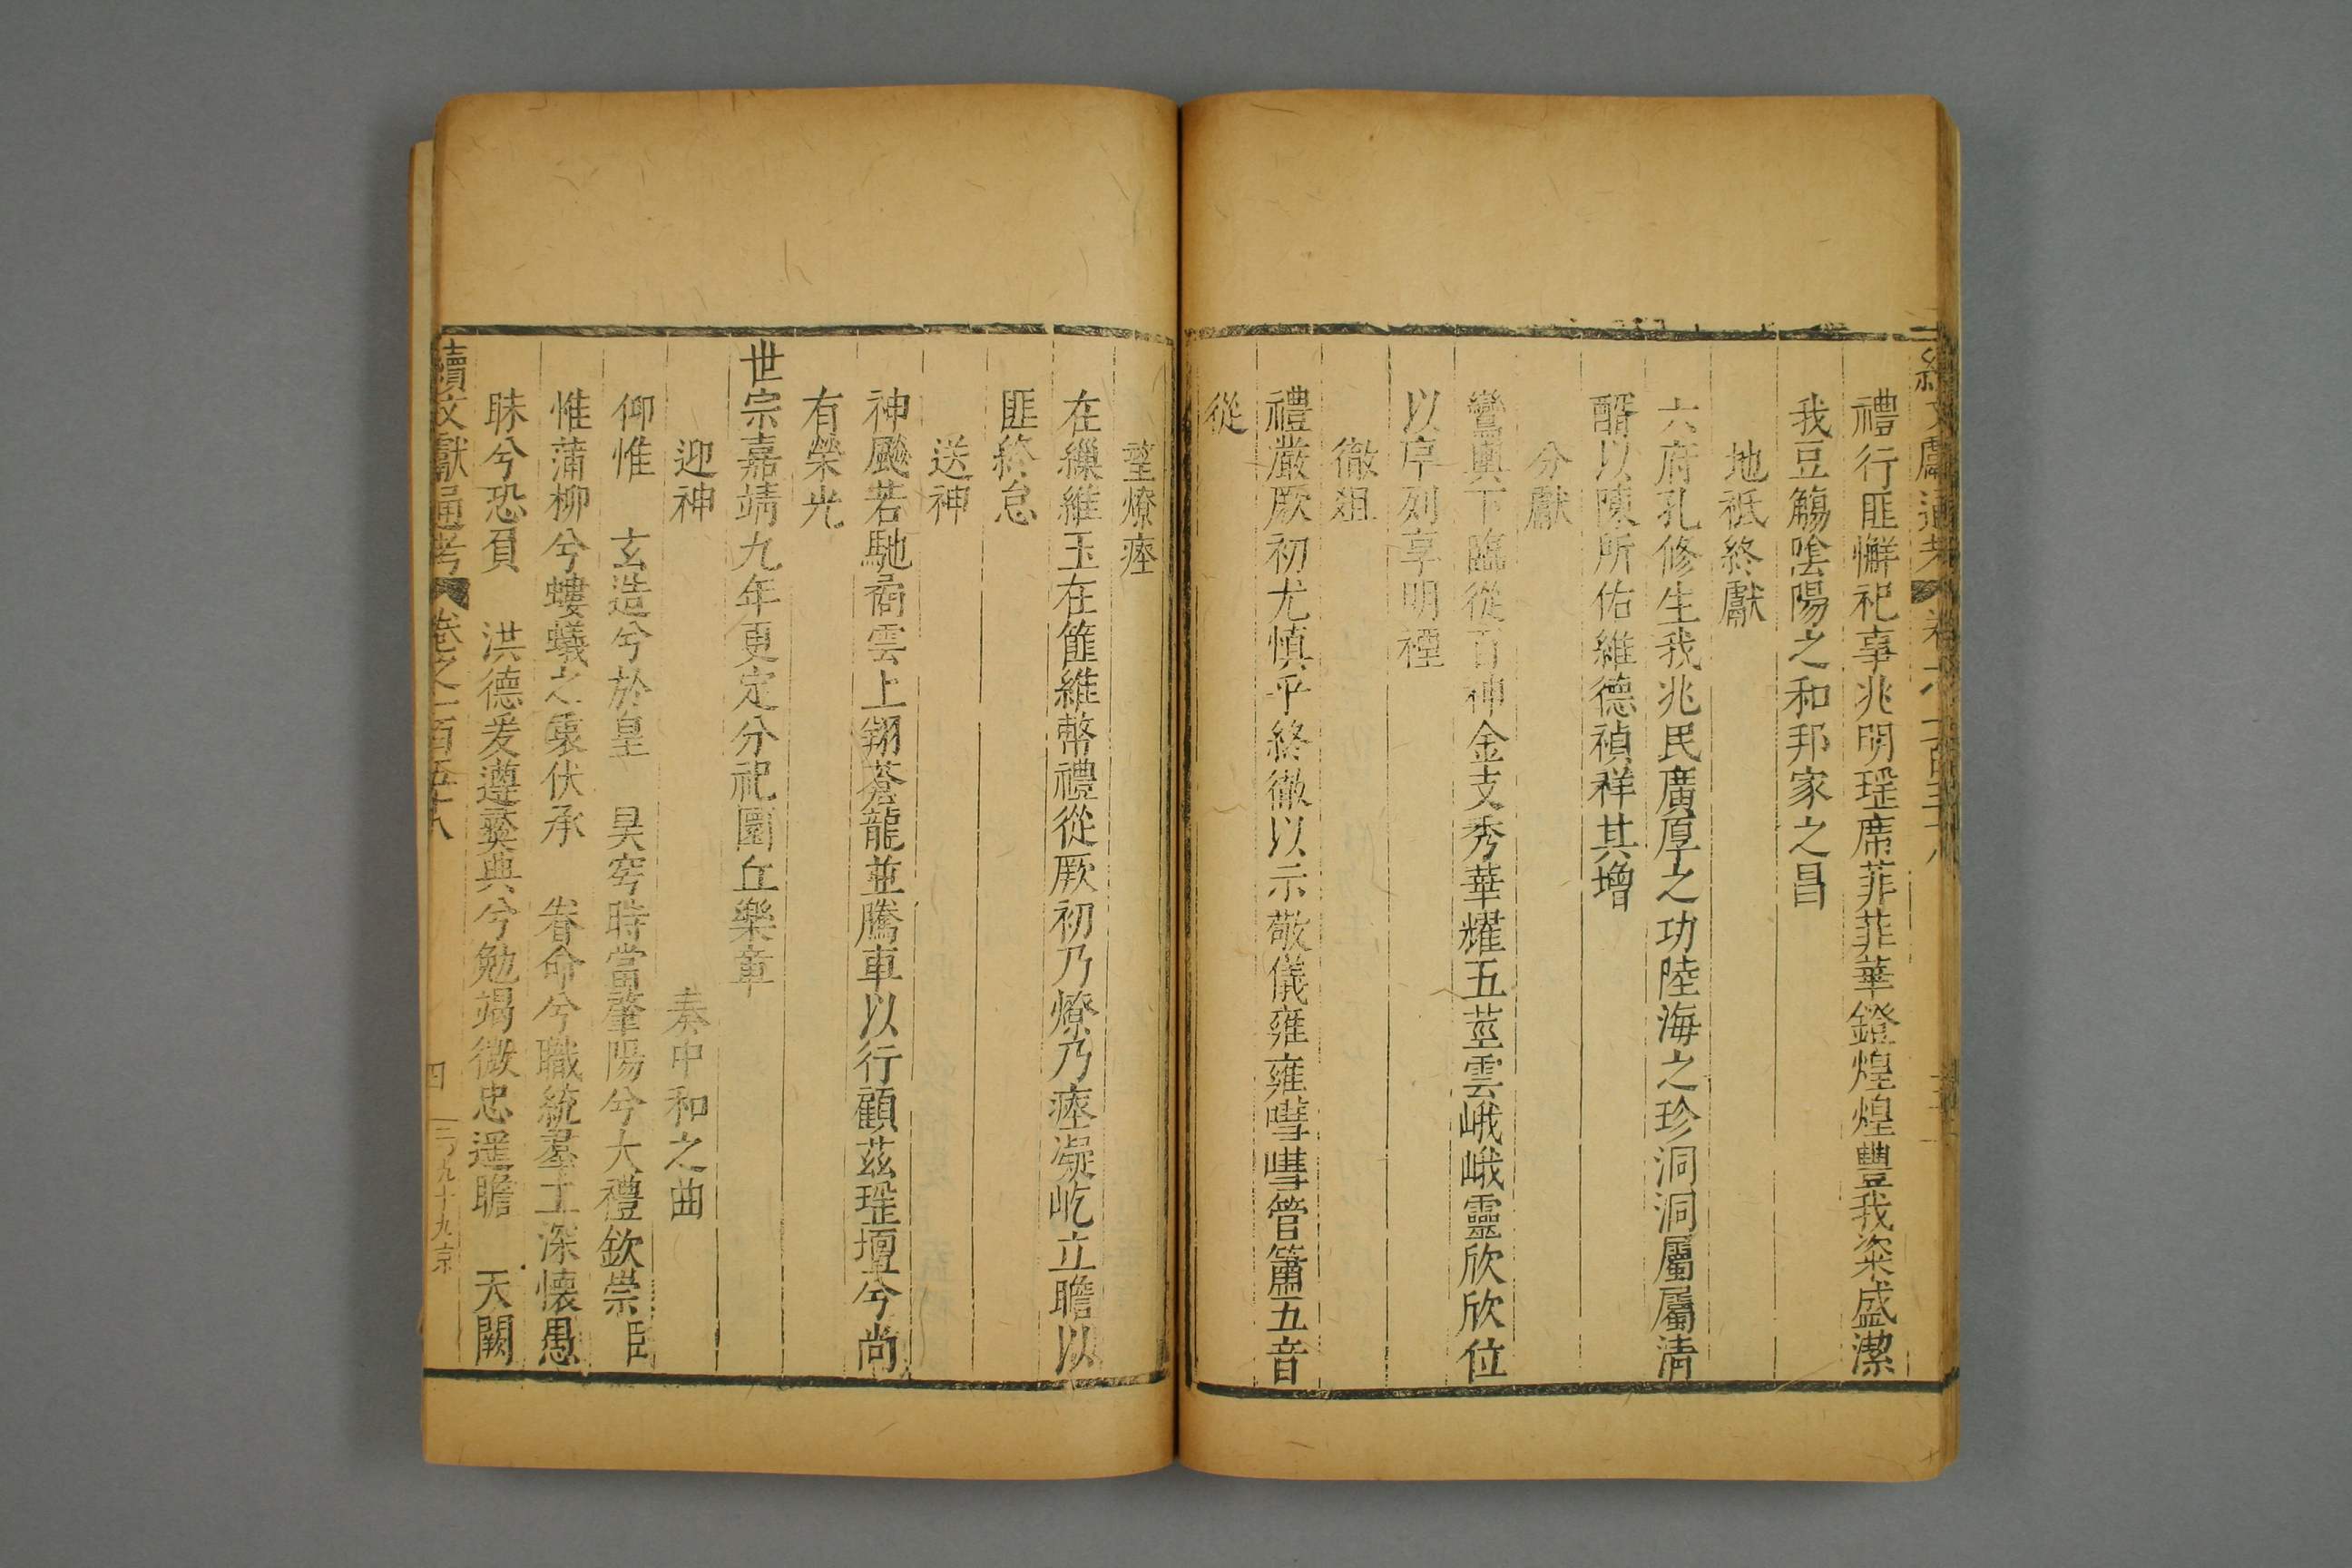 禮行匪懈祀事兆明瑆席菲菲華鐙煌煌豐我粢盛潔
我豆觴陰陽之和邦家之昌
地祇終獻
六府孔修生我兆民廣厚之功陸海之珍洞洞屬屬清
酤以陳所佑維德禎祥其增
分獻
鸞輿下臨從百神金支秀華耀五莖雲峨峨靈欣欣位
以序列享明禋
徹俎
禮嚴厥初尤慎乎終徹以示敬儀雍雍嘒嘒管簫五音
從
望燎瘞
在繅維玉在篚維幣禮從厥初乃燎乃瘞凝屹立瞻以
匪終怠
送神
神飈若馳矞雲上翔蒼龍並騰車以行顧茲瑆壇兮尚
有榮光
世宗嘉靖九年更定分祀圜丘樂章
迎神　奏中和之曲
仰惟　玄造兮於皇　昊穹時當肇陽兮大禮欽崇臣
惟蒲柳兮螻蟻之衷伏承　眷命兮職統羣工深懷愚
昧兮恐負　洪德爰遵彝典兮勉竭微忠遥瞻　天闕
續文獻通考　卷之一百五十八　四